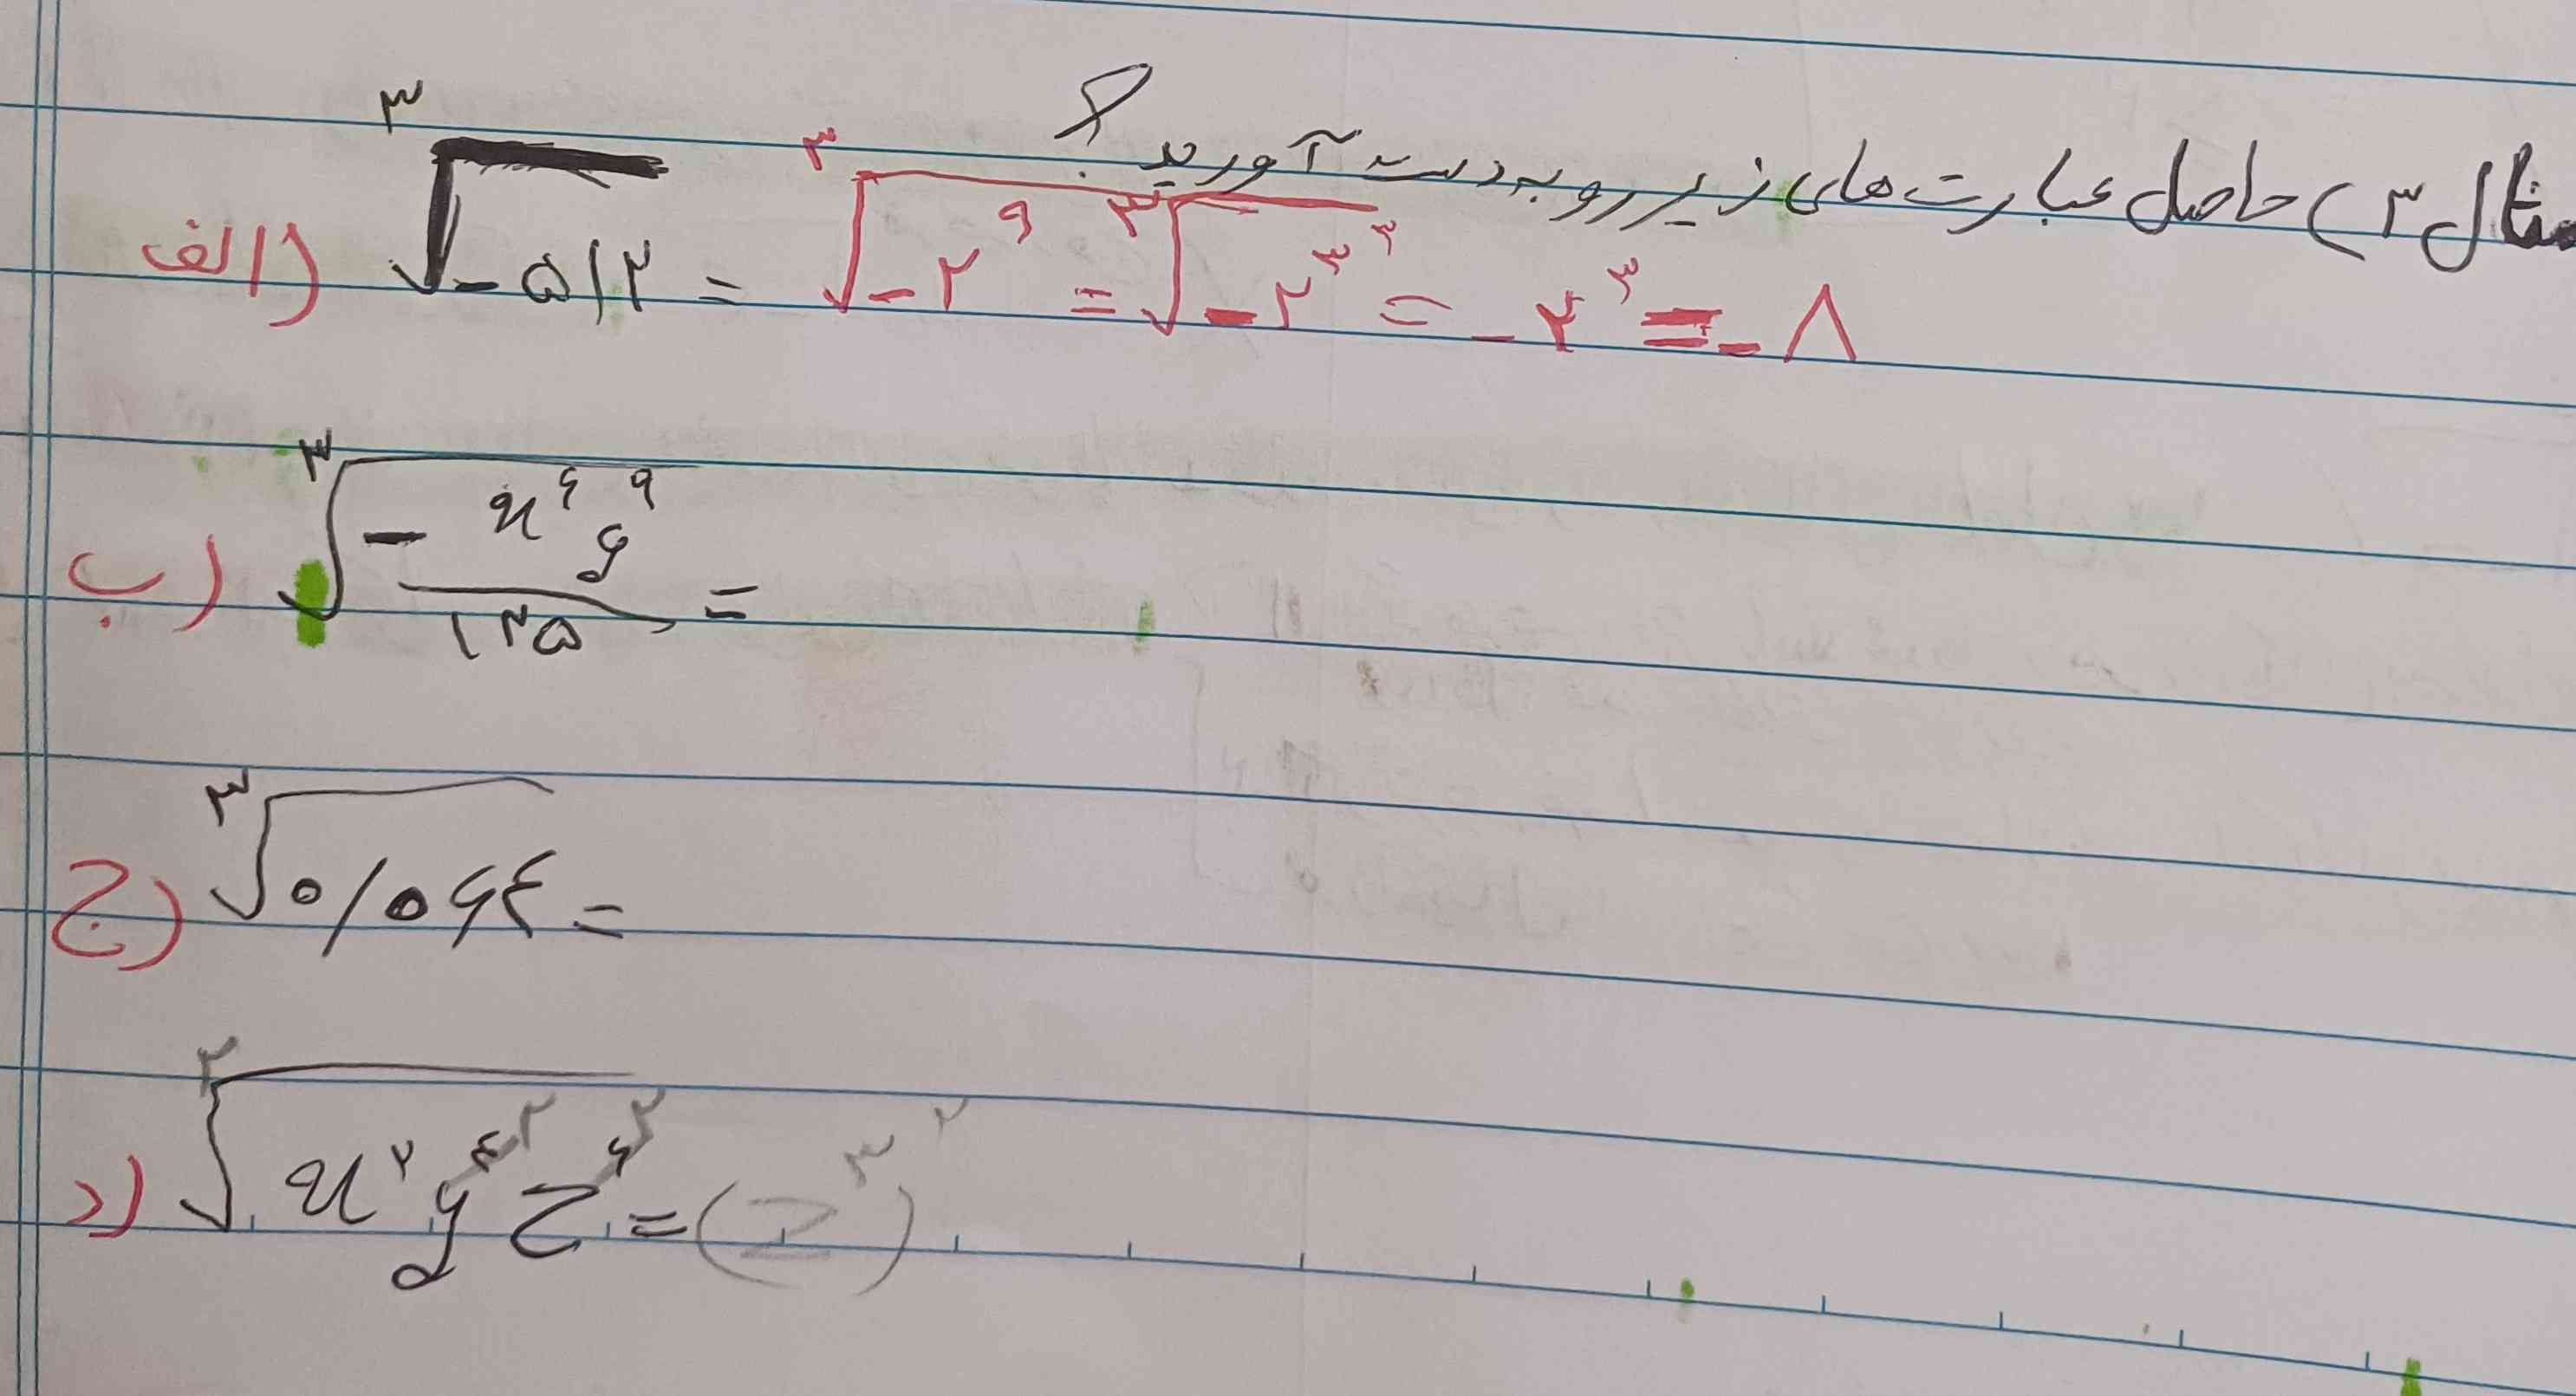 مثال ۳) حاصل عبارت های زیر رو به دست آورید؟
الف) ∛-۵۱۲ = ∛-۲^۹ = ∛-۲^۳^۳ = -۲^۳ = -۸
ب) ∛(-x^۶ y^۹ / ۱۲۵) =
ج) ∛۰/۰۶۴ =
د) ∛x^۲ y^۴^۲ z^۶^۳ = (z^۳)^۲